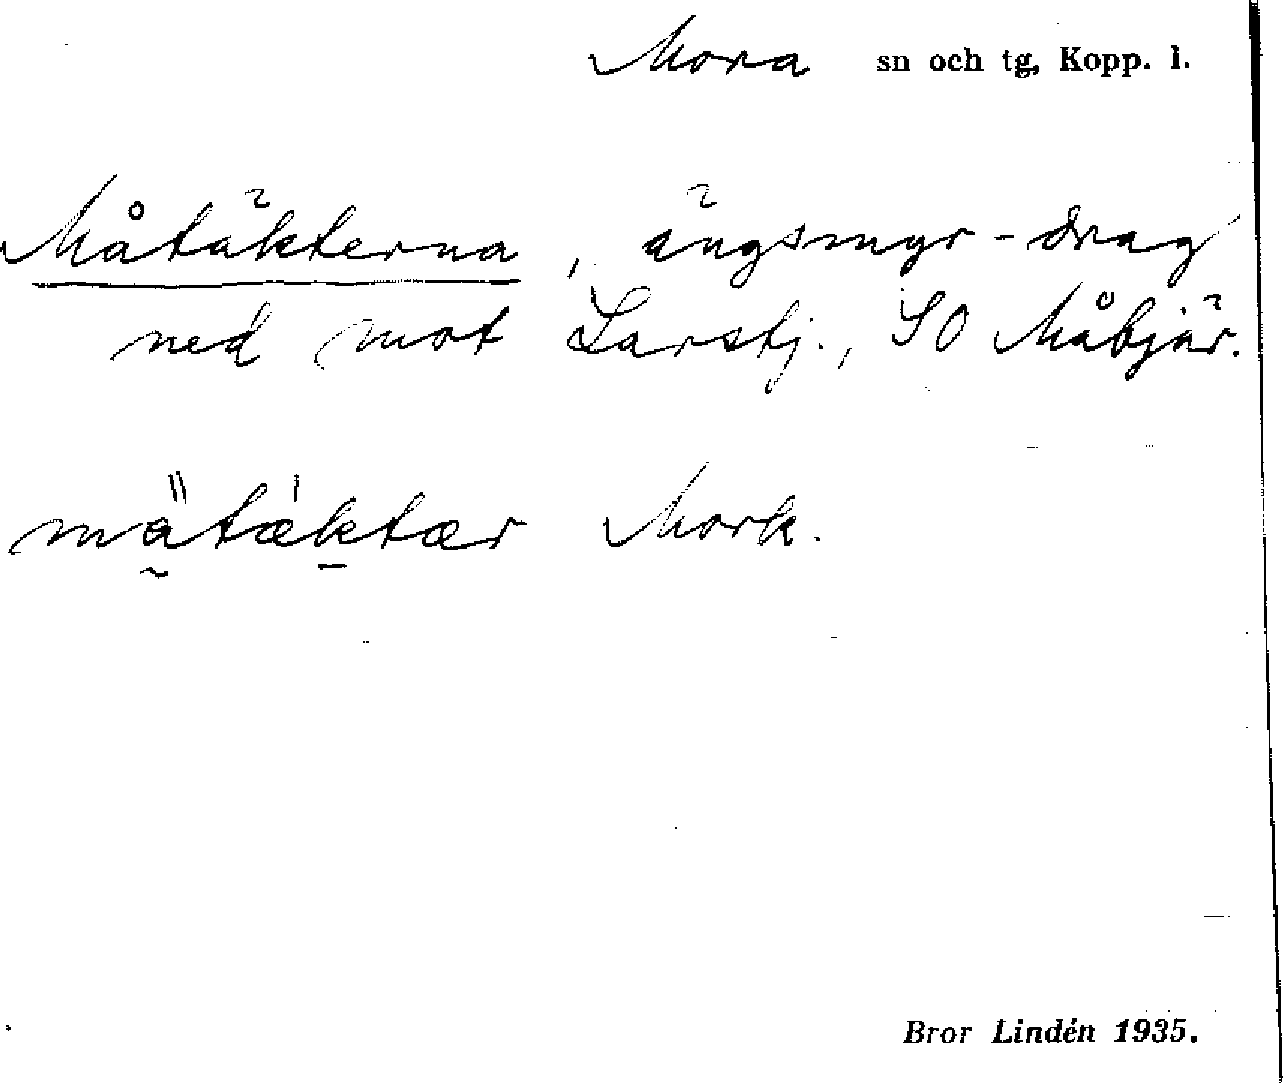 Mora sn och tg, Kopp. l.
Måtäkterna, ängsmyr-drag
ned mot Larstj., SO Måbjär.
mätæktær Mork.
Bror Lindén 1935.